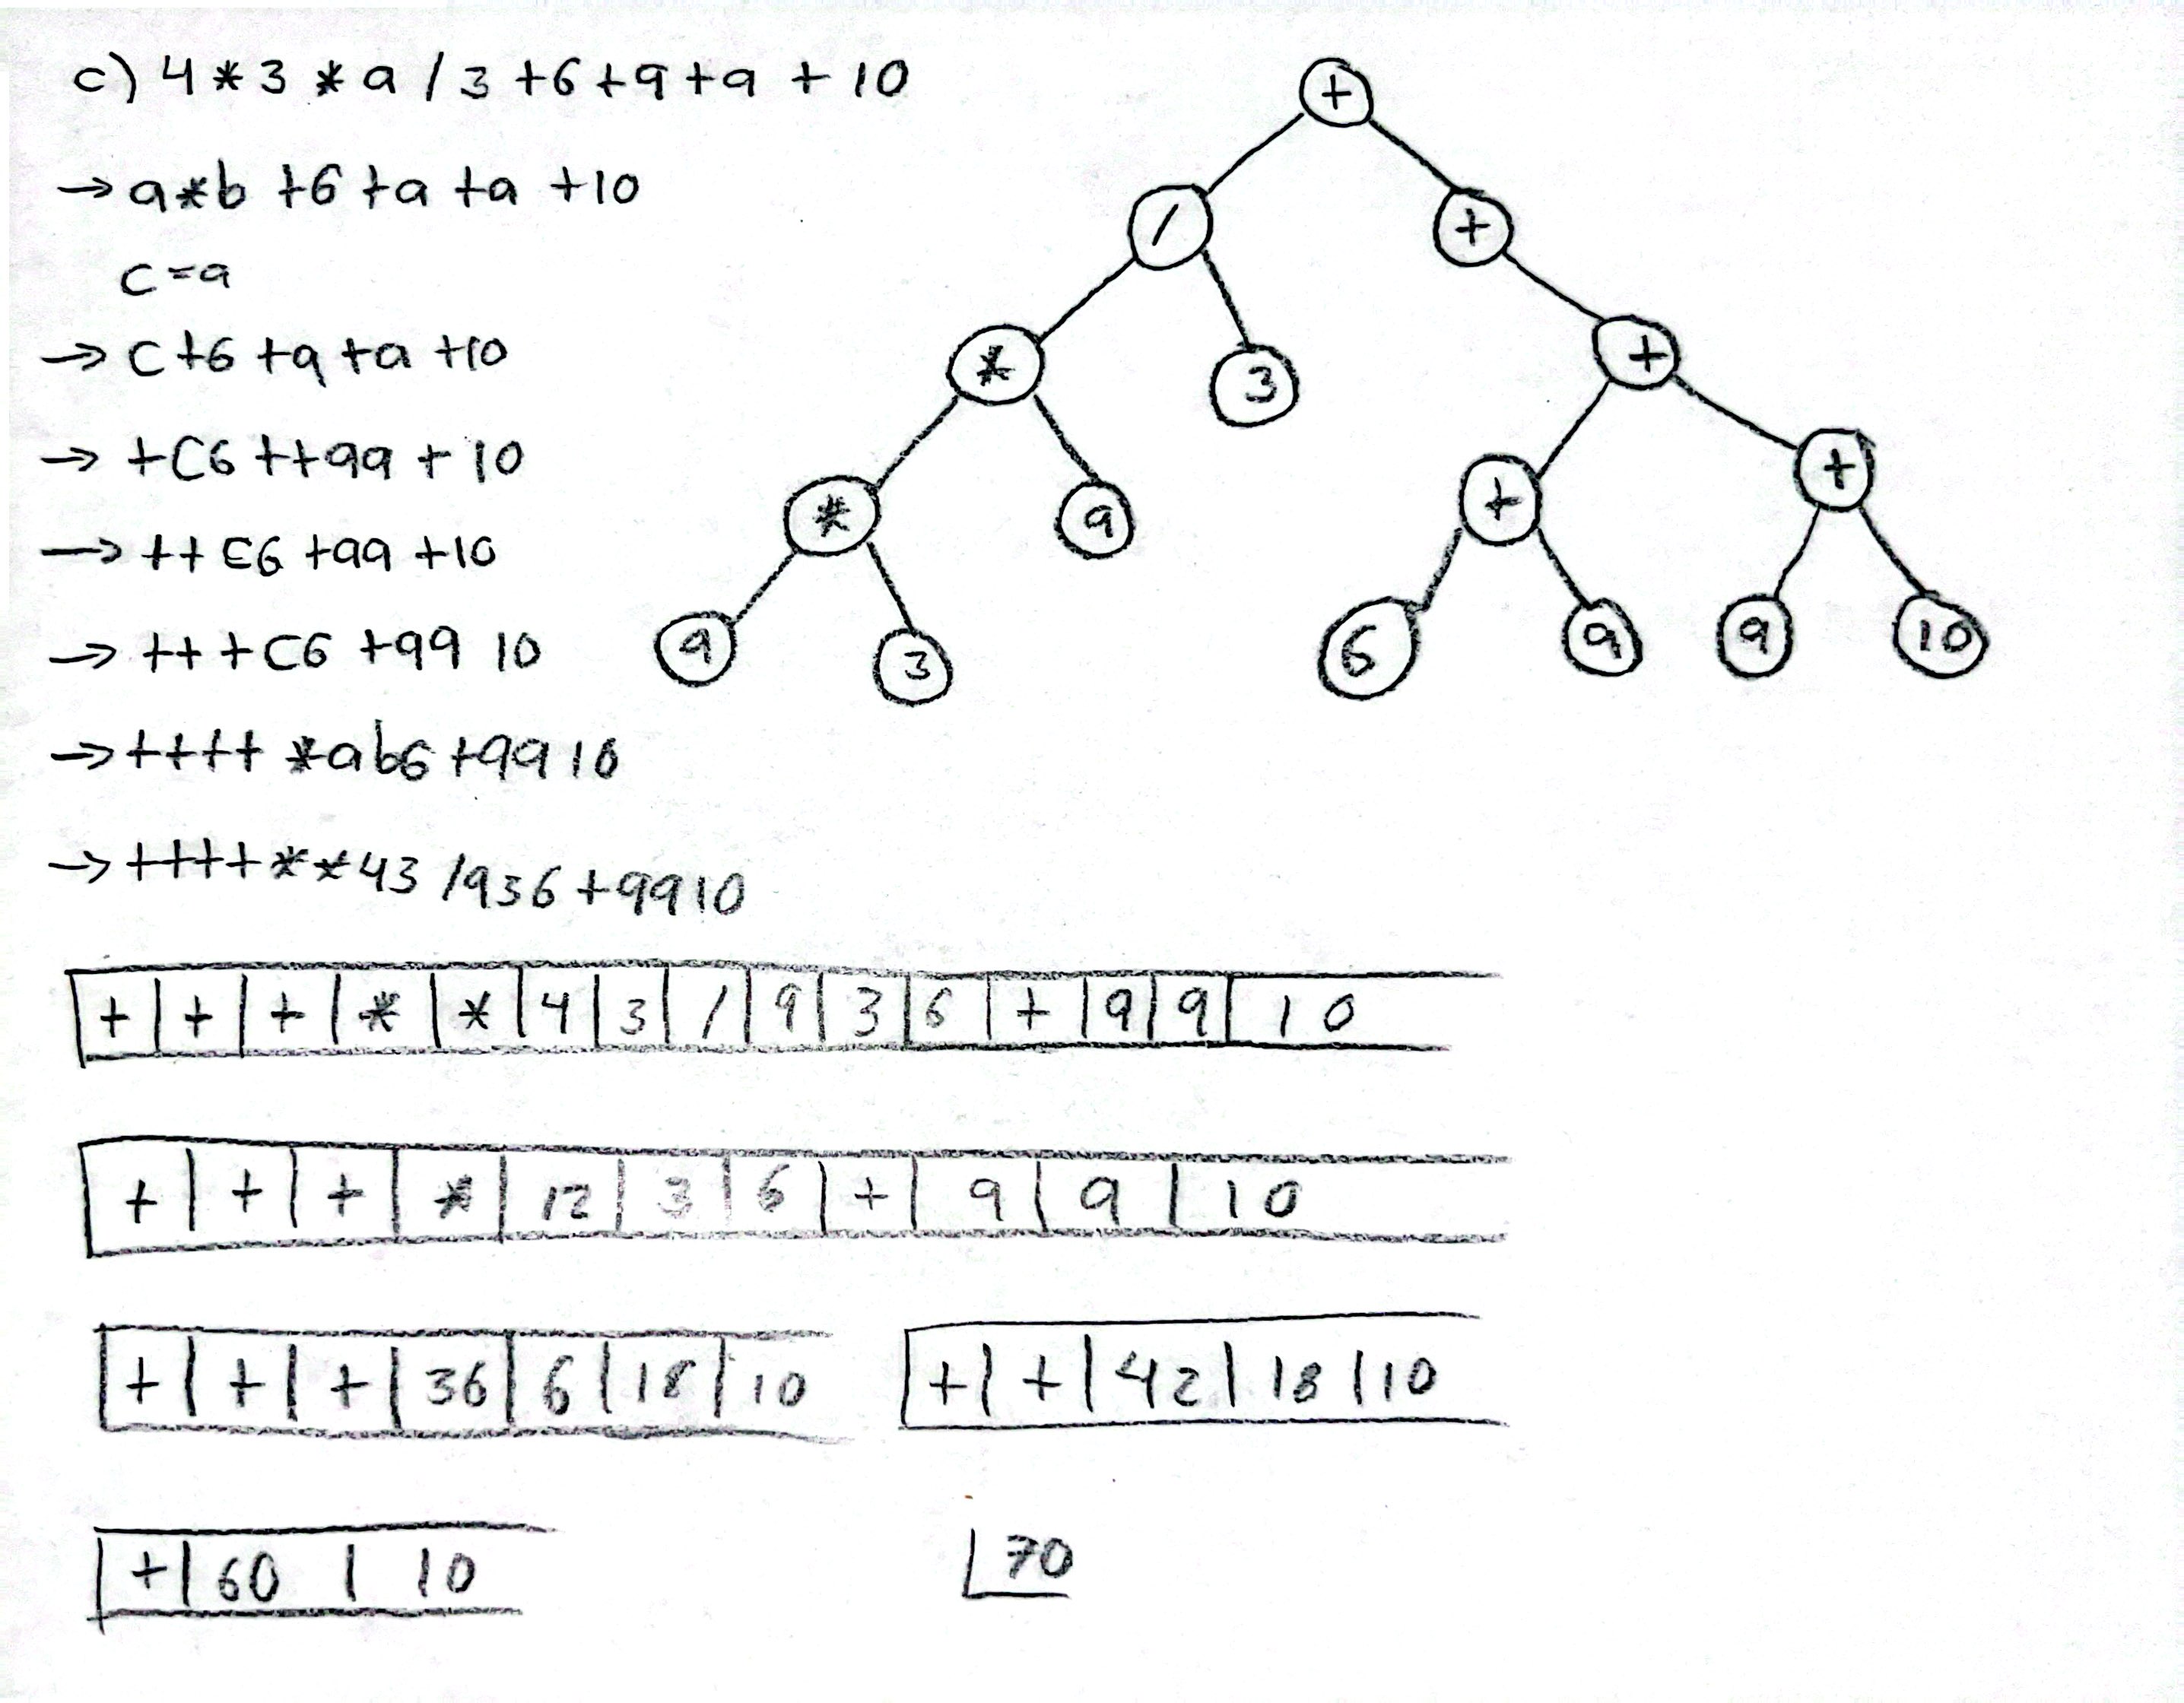 c) 4 * 3 * 9 / 3 + 6 + 9 + 9 + 10
→ a * b + 6 + 9 + 9 + 10
c = 9
→ C + 6 + 9 + 9 + 10
→ + C 6 + + 9 9 + 10
→ + + C 6 + 9 9 + 10
→ + + + C 6 + 9 9 10
→ + + + + * a b 6 + 9 9 10
→ + + + + * * 4 3 / 9 3 6 + 9 9 10
+
/ +
* 3 +
* 9 + +
9 3 6 9 9 10
+ | + | + | * | * | 4 | 3 | / | 9 | 3 | 6 | + | 9 | 9 | 10
+ | + | + | * | 12 | 3 | 6 | + | 9 | 9 | 10
+ | + | + | 36 | 6 | 18 | 10
+ | + | 42 | 18 | 10
+ | 60 | 10
70